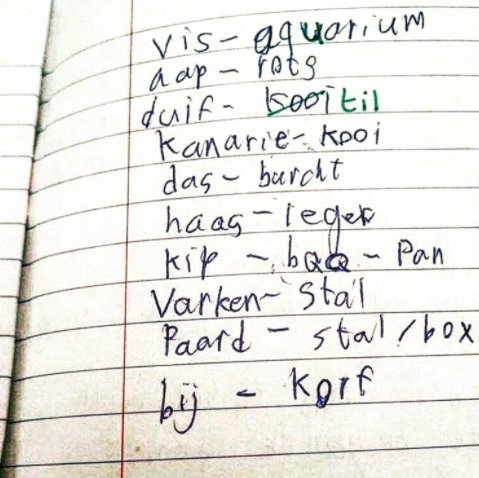 vis - aquarium
aap - rots
duif - kooi til
kanarie - kooi
das - burcht
haas - leger
kip - bQQ - Pan
Varken - stal
Paard - stal / box
bij - korf